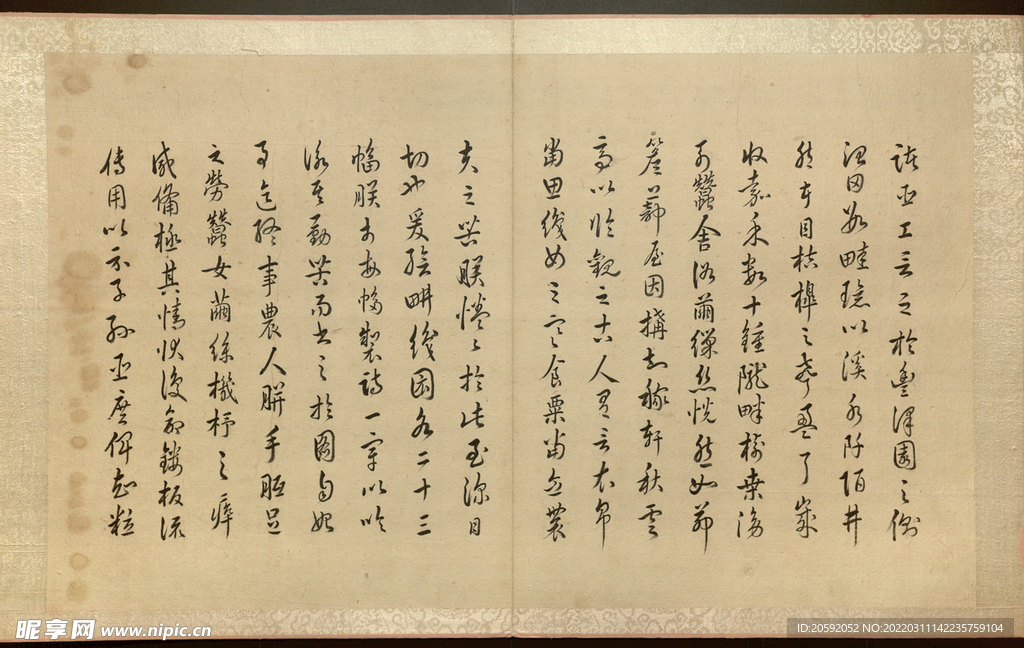 諸臣工言之於豐澤園之側
治田數畦環以溪水阡陌井
然在目桔槔之聲盈耳歲
收嘉禾數十鍾隴畔樹桑傍
列蠶舍浴繭繅絲恍然如茆
簷蔀屋因構知稼軒秋雲
亭以臨觀之古人有言衣帛
當思織女之寒食粟當念農
夫之苦朕惓惓於此至深且
切也爰繪畊織圖各二十三
幅朕於每幅製詩一章以吟
詠其勤苦而書之於圖自始
事迄終事農人胼手胝足
之勞蠶女繭絲機杼之瘁
咸備極其情狀復命鏤板流
傳用以示子孫臣庶俾知粒
昵享网 www.nipic.cn
ID:20592052 NO:20220311142235759104